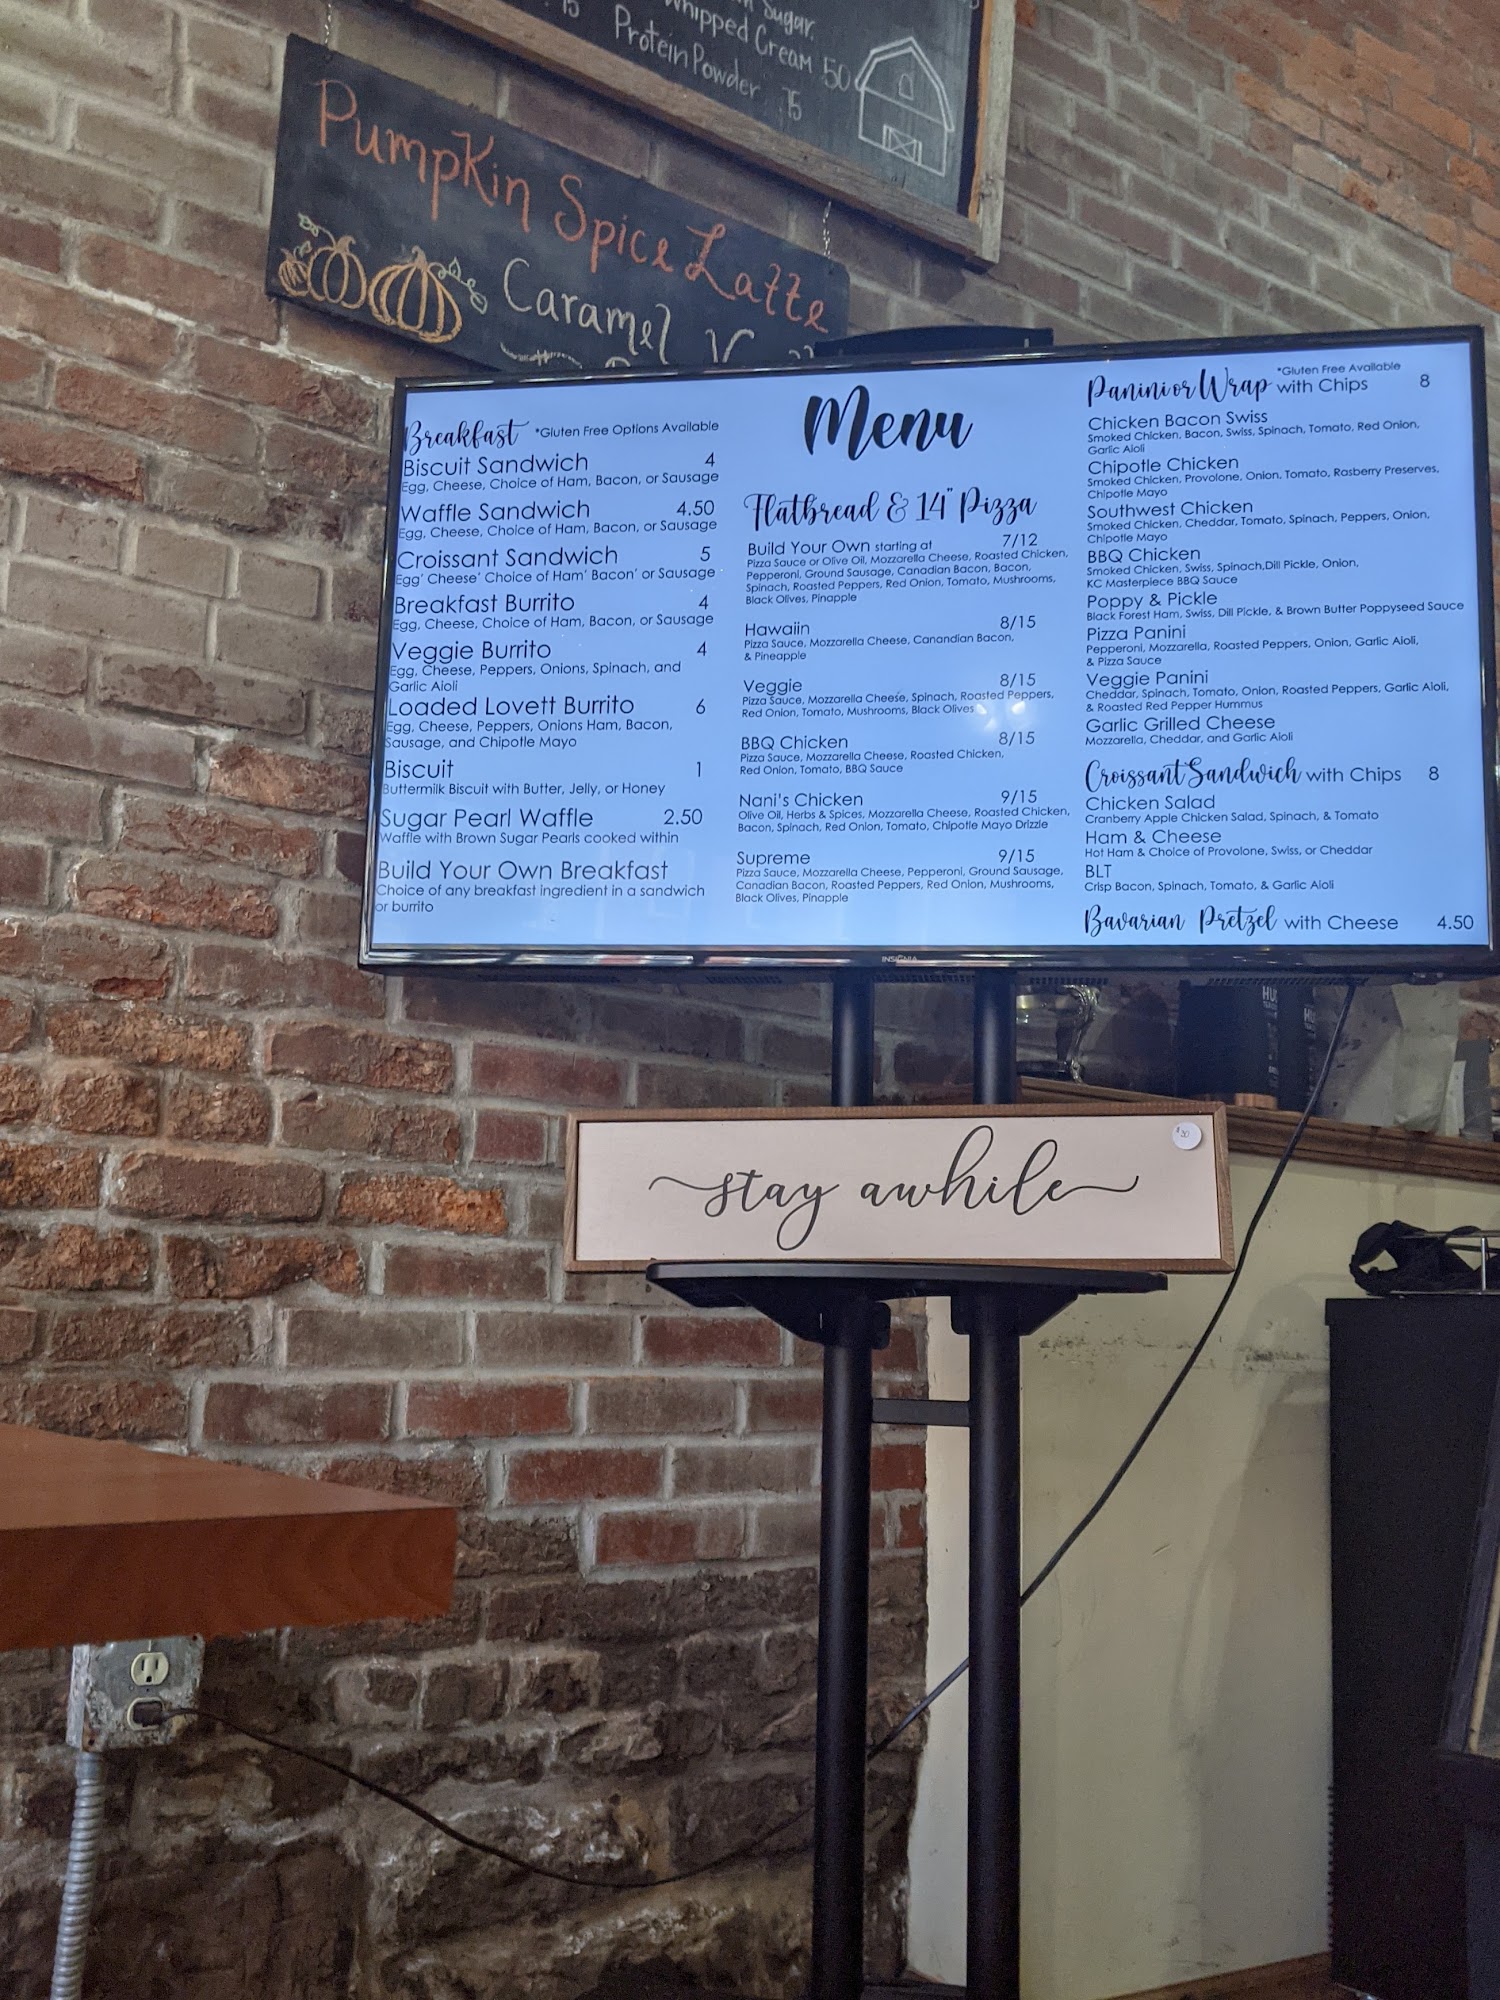 Sugar.
15 Whipped Cream 50
Protein Powder 75
Pumpkin Spice Latte
Caramel
Breakfast *Gluten Free Options Available
Biscuit Sandwich 4
Egg, Cheese, Choice of Ham, Bacon, or Sausage
Waffle Sandwich 4.50
Egg, Cheese, Choice of Ham, Bacon, or Sausage
Croissant Sandwich 5
Egg' Cheese' Choice of Ham' Bacon' or Sausage
Breakfast Burrito 4
Egg, Cheese, Choice of Ham, Bacon, or Sausage
Veggie Burrito 4
Egg, Cheese, Peppers, Onions, Spinach, and
Garlic Aioli
Loaded Lovett Burrito 6
Egg, Cheese, Peppers, Onions Ham, Bacon,
Sausage, and Chipotle Mayo
Biscuit 1
Buttermilk Biscuit with Butter, Jelly, or Honey
Sugar Pearl Waffle 2.50
Waffle with Brown Sugar Pearls cooked within
Build Your Own Breakfast
Choice of any breakfast ingredient in a sandwich
or burrito
Menu
Flatbread & 14" Pizza
Build Your Own starting at 7/12
Pizza Sauce or Olive Oil, Mozzarella Cheese, Roasted Chicken,
Pepperoni, Ground Sausage, Canadian Bacon, Bacon,
Spinach, Roasted Peppers, Red Onion, Tomato, Mushrooms,
Black Olives, Pinapple
Hawaiin 8/15
Pizza Sauce, Mozzarella Cheese, Canandian Bacon,
& Pineapple
Veggie 8/15
Pizza Sauce, Mozzarella Cheese, Spinach, Roasted Peppers,
Red Onion, Tomato, Mushrooms, Black Olives
BBQ Chicken 8/15
Pizza Sauce, Mozzarella Cheese, Roasted Chicken,
Red Onion, Tomato, BBQ Sauce
Nani's Chicken 9/15
Olive Oil, Herbs & Spices, Mozzarella Cheese, Roasted Chicken,
Bacon, Spinach, Red Onion, Tomato, Chipotle Mayo Drizzle
Supreme 9/15
Pizza Sauce, Mozzarella Cheese, Pepperoni, Ground Sausage,
Canadian Bacon, Roasted Peppers, Red Onion, Mushrooms,
Black Olives, Pinapple
*Gluten Free Available
Panini or Wrap with Chips 8
Chicken Bacon Swiss
Smoked Chicken, Bacon, Swiss, Spinach, Tomato, Red Onion,
Garlic Aioli
Chipotle Chicken
Smoked Chicken, Provolone, Onion, Tomato, Rasberry Preserves,
Chipotle Mayo
Southwest Chicken
Smoked Chicken, Cheddar, Tomato, Spinach, Peppers, Onion,
Chipotle Mayo
BBQ Chicken
Smoked Chicken, Swiss, Spinach,Dill Pickle, Onion,
KC Masterpiece BBQ Sauce
Poppy & Pickle
Black Forest Ham, Swiss, Dill Pickle, & Brown Butter Poppyseed Sauce
Pizza Panini
Pepperoni, Mozzarella, Roasted Peppers, Onion, Garlic Aioli,
& Pizza Sauce
Veggie Panini
Cheddar, Spinach, Tomato, Onion, Roasted Peppers, Garlic Aioli,
& Roasted Red Pepper Hummus
Garlic Grilled Cheese
Mozzarella, Cheddar, and Garlic Aioli
Croissant Sandwich with Chips 8
Chicken Salad
Cranberry Apple Chicken Salad, Spinach, & Tomato
Ham & Cheese
Hot Ham & Choice of Provolone, Swiss, or Cheddar
BLT
Crisp Bacon, Spinach, Tomato, & Garlic Aioli
Bavarian Pretzel with Cheese 4.50
INSIGNIA
stay awhile